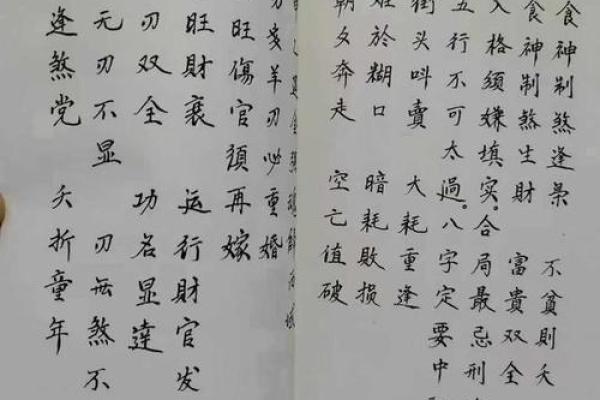 食神制煞逢枭 不貧則夭
食神制煞生財 富貴双全
入格须嫌填实。合局最忌刑
五行不可太過。八字定要中
街头叫賣 大耗重逢
於糊口 暗耗敗损
朝夕奔走 空亡值破
刃多羊刃必重婚
旺傷官須再嫁
旺財衰 运行財官发
刃双全 功名显達
无刃不显 刃無煞不
逢煞党 夭折童年